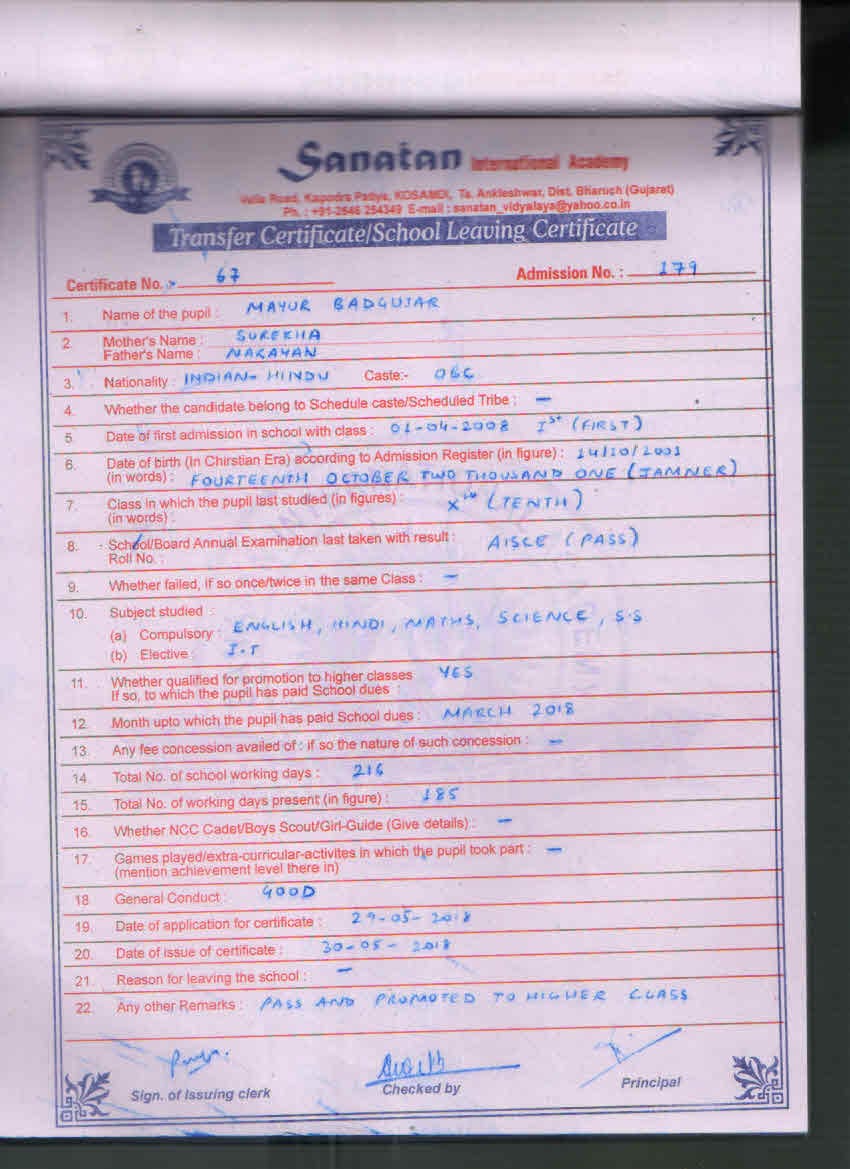 Sanatan International Academy
Valia Road, Kapodra Patiya, KOSAMDI, Ta. Ankleshwar, Dist. Bharuch (Gujarat)
Ph. : +91-2646 254349 E-mail : sanatan_vidyalaya@yahoo.co.in
Transfer Certificate/School Leaving Certificate
Certificate No. :- 67 Admission No. : 179
1. Name of the pupil : MAYUR BADGUJAR
2. Mother's Name : SUREKHA
Father's Name : NARAYAN
3. Nationality : INDIAN - HINDU Caste:- OBC
4. Whether the candidate belong to Schedule caste/Scheduled Tribe : —
5. Date of first admission in school with class : 01-04-2008 Ist (FIRST)
6. Date of birth (In Chirstian Era) according to Admission Register (in figure) : 14/10/2001
(in words) : FOURTEENTH OCTOBER TWO THOUSAND ONE (JAMNER)
7. Class in which the pupil last studied (in figures) : Xth (TENTH)
(in words) :
8. School/Board Annual Examination last taken with result : AISCE (PASS)
Roll No. :
9. Whether failed, if so once/twice in the same Class : —
10. Subject studied :
(a) Compulsory : ENGLISH, HINDI, MATHS, SCIENCE, S.S
(b) Elective : I.T
11. Whether qualified for promotion to higher classes YES
If so, to which the pupil has paid School dues :
12. Month upto which the pupil has paid School dues : MARCH 2018
13. Any fee concession availed of : if so the nature of such concession : —
14. Total No. of school working days : 216
15. Total No. of working days present (in figure) : 185
16. Whether NCC Cadet/Boys Scout/Girl-Guide (Give details) : —
17. Games played/extra-curricular-activites in which the pupil took part : —
(mention achievement level there in)
18. General Conduct : GOOD
19. Date of application for certificate : 29-05-2018
20. Date of issue of certificate : 30-05-2018
21. Reason for leaving the school : —
22. Any other Remarks : PASS AND PROMOTED TO HIGHER CLASS
Sign. of Issuing clerk Checked by Principal